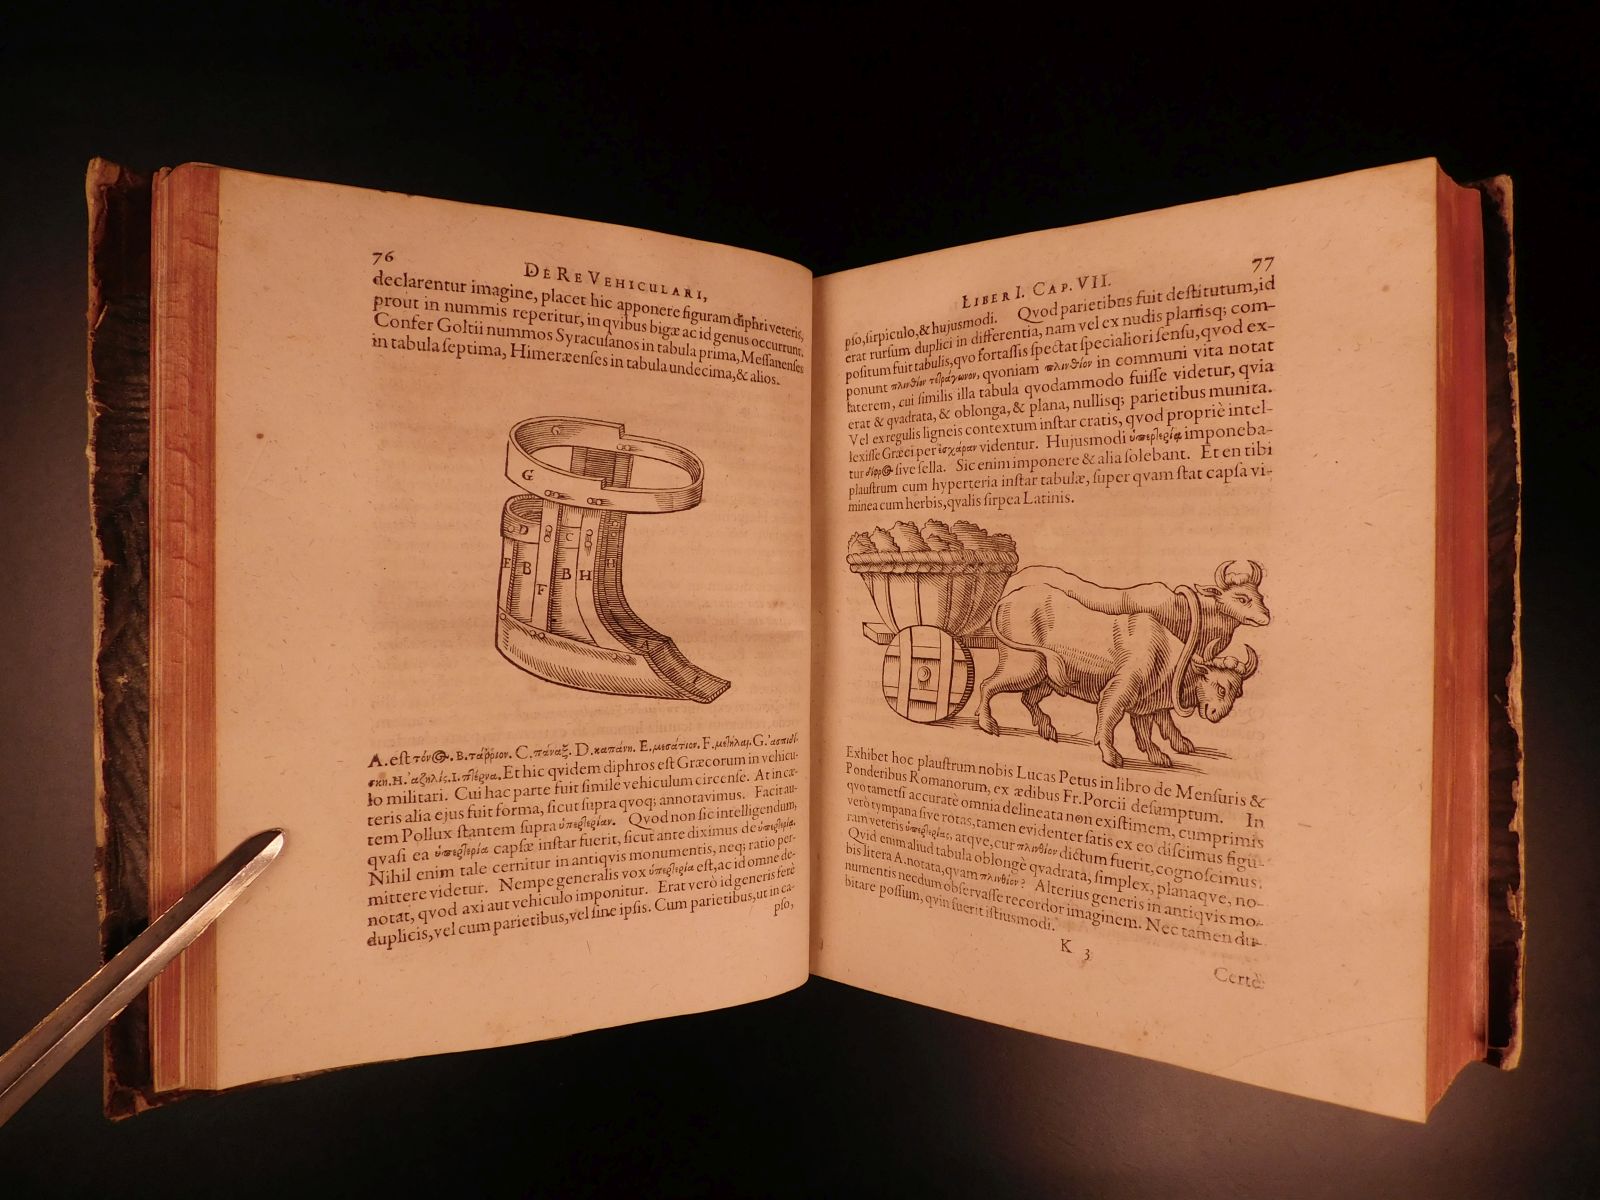 76
DE RE VEHICULARI,
declarentur imagine, placet hic apponere figuram diphri veteris,
prout in nummis reperitur, in qvibus bigæ ac id genus occurrunt.
Confer Goltii nummos Syracusanos in tabula prima, Messanenses
in tabula septima, Himeræenses in tabula undecima, & alios.
G
G
D
C
E
B
F
B
H
H
A
I
A. est τόνος. B. τάρριον. C. πάναξ. D. καπάνη. E. μεσάτιον. F. C. G. ἀσπιδί-
σκη. H. I. πτέρνα. Et hic qvidem diphros est Græcorum in vehicu-
lo militari. Cui hac parte fuit simile vehiculum circense. At in cæ-
teris alia ejus fuit forma, sicut supra qvoq; annotavimus. Facit au-
tem Pollux stantem supra ὑπερτερίαν. Qvod non sic intelligendum,
qvasi ea ὑπερτερία capsæ instar fuerit, sicut ante diximus de ὑπερτερία.
Nihil enim tale cernitur in antiqvis monumentis, neq; ratio per-
mittere videtur. Nempe generalis vox ὑπερτερία est, ac id omne de-
notat, qvod axi aut vehiculo imponitur. Erat verò id generis ferè
duplicis, vel cum parietibus, vel sine ipsis. Cum parietibus, ut in ca-
pso,
77
LIBER I. CAP. VII.
pso, sirpiculo, & hujusmodi. Qvod parietibus fuit destitutum, id
erat rursum duplici in differentia, nam vel ex nudis planisq; com-
positum fuit tabulis, qvo fortassis spectat specialiori sensu, qvod ex-
ponunt πλινθίον τετράγωνον, qvoniam πλινθίον in communi vita notat
laterem, cui similis illa tabula qvodammodo fuisse videtur, qvia
erat & qvadrata, & oblonga, & plana, nullisq; parietibus munita.
Vel ex regulis ligneis contextum instar cratis, qvod propriè intel-
lexisse Græci per ἐσχάραν videntur. Hujusmodi ὑπερτερία imponeba-
tur δίφρος sive sella. Sic enim imponere & alia solebant. Et en tibi
plaustrum cum hyperteria instar tabulæ, super qvam stat capsa vi-
minea cum herbis, qvalis sirpea Latinis.
Exhibet hoc plaustrum nobis Lucas Petus in libro de Mensuris &
Ponderibus Romanorum, ex ædibus Fr. Porcii desumptum. In
qvo tametsi accuratè omnia delineata non existimem, cumprimis
verò tympana sive rotas, tamen evidenter satis ex eo discimus figu-
ram veteris ὑπερτερίας, atqve, cur πλινθίον dictum fuerit, cognoscimus.
Qvid enim aliud tabula oblongè qvadrata, simplex, planaqve, no-
bis litera A. notata, qvam πλινθίον? Alterius generis in antiqvis mo-
numentis necdum observasse recordor imaginem. Nec tamen du-
bitare possum, qvin fuerit istiusmodi.
K 3
Certè